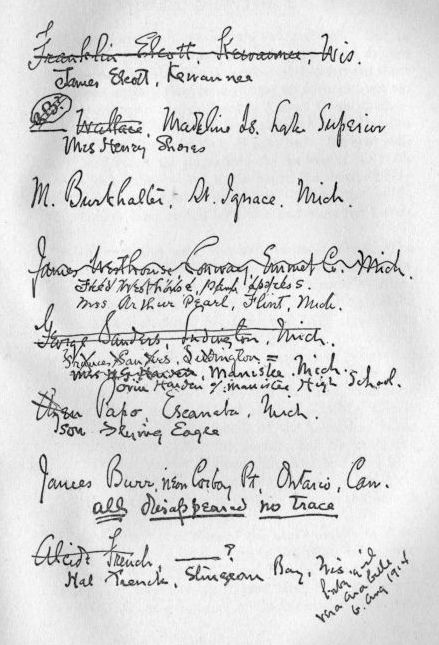 Franklin Escott, Kewaunee, Wis.
James Escott, Kewaunee
Wallace, Madeline Is. Lake Superior
Mrs Henry Shores
M. Burkhalter, St. Ignace. Mich.
James Westhouse Conway, Emmet Co. Mich.
Fred Westhouse,
Mrs. Arthur Pearl, Flint, Mich.
George Sanders, Ludington, Mich.
Frances Sanders, Ludington =
Manistee. Mich.
Harden % Manistee High School.
Papo, Escanaba, Mich.
son Flying Eagle
James Burr, near Corboy Pt, Ontario, Can.
all disappeared no trace
Alcide French, ?
Hal French, Sturgeon Bay, Wis.
6. Aug 1914